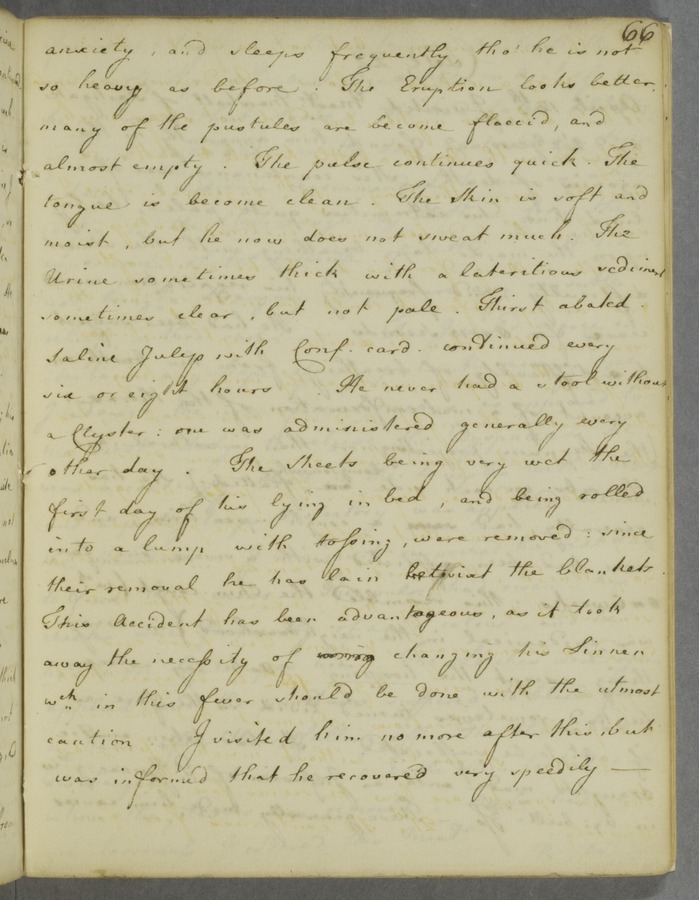 66
anxiety, and sleeps frequently tho' he is not
so heavy as before. The Eruption looks better.
many of the pustules are become flaccid, and
almost empty. The pulse continues quick. The
tongue is become clean. The Skin is soft and
moist, but he now does not sweat much. The
Urine sometimes thick with a lateritious sediment
sometimes clear, but not pale. Thirst abated.
Saline Julep with Conf. card. continued every
six or eight hours. He never had a stool without
a Clyster: one was administered generally every
other day. The Sheets being very wet the
first day of his lying in bed, and being rolled
into a lump with tossing, were removed: since
their removal he has lain betwixt the blankets.
This Accident has been advantageous, as it took
away the necessity of changing his Linnen
wch. in this fever should be done with the utmost
caution. I visited him no more after this, but
was inform'd that he recovered very speedily —